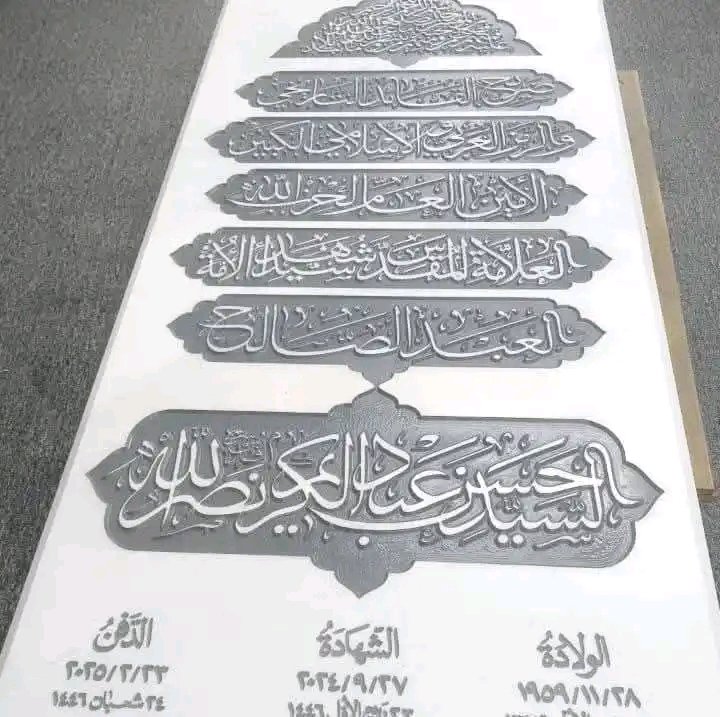 ضريح القائد التاريخي
على الزمن العربي والإسلامي الكبير
الأمين العام لحزب الله
العلامة المقدس سيد شهداء الأمة
العبد الصالح
السيد حسن عبد الكريم نصر الله
الولادة
١٩٥٩/١١/٢٨
الشهادة
٢٠٢٤/٩/٢٧
٢٣ ربيع الأول ١٤٤٦
الدفن
٢٠٢٥/٢/٢٣
٢٤ شعبان ١٤٤٦